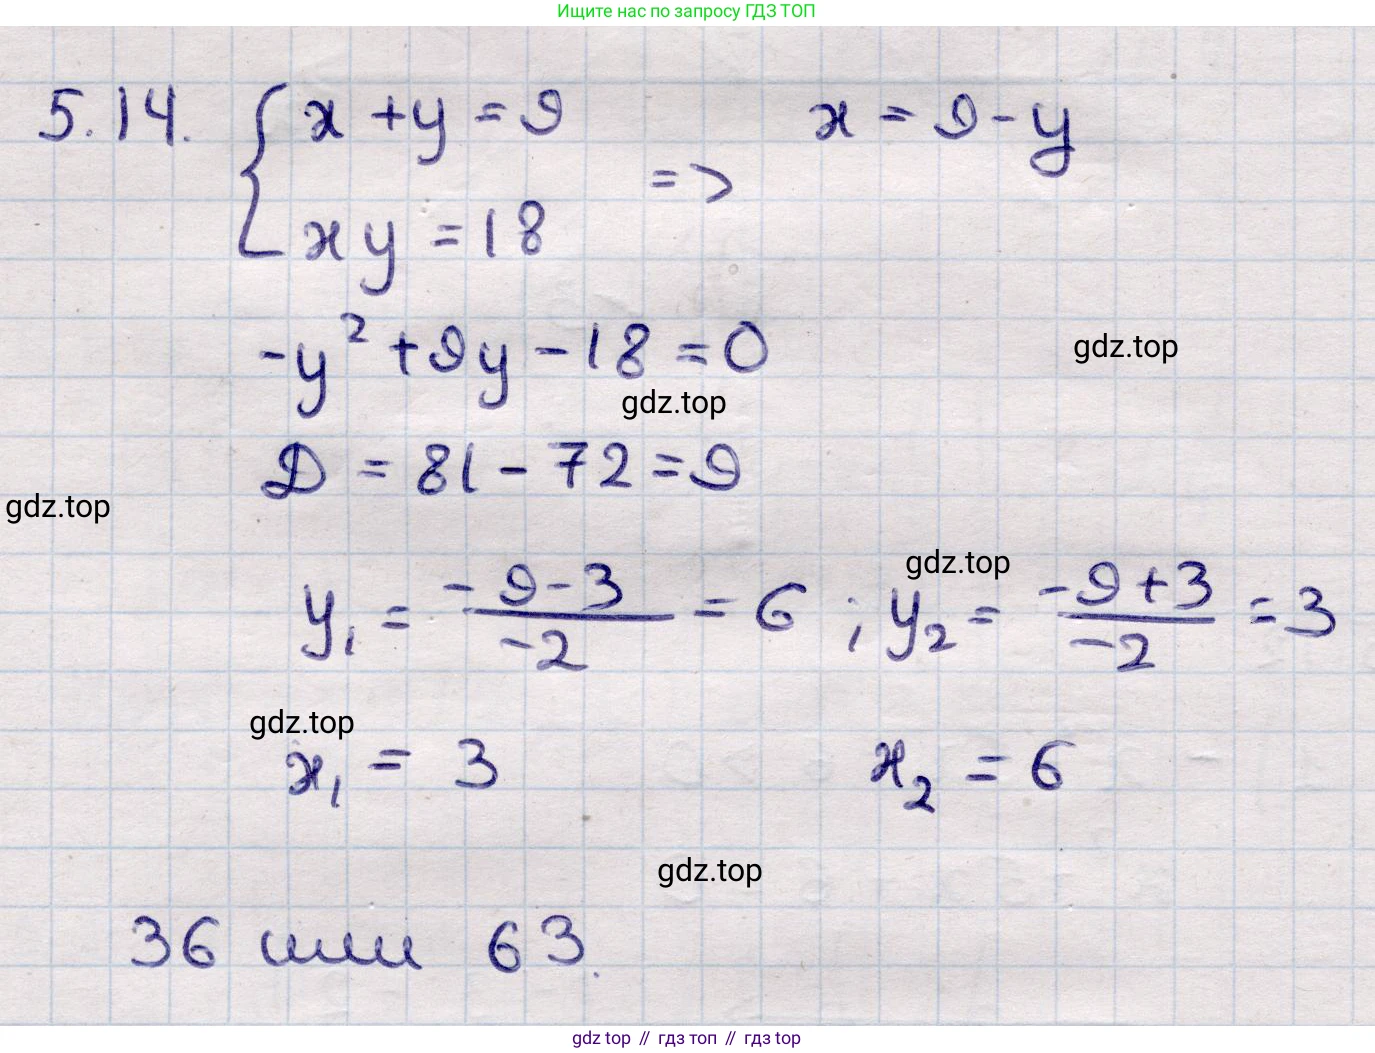 Ищите нас по запросу ГДЗ ТОП
5.14. { x + y = 9 x = 9 - y
xy = 18 =>
-y² + 9y - 18 = 0
gdz.top
gdz.top
Д = 81 - 72 = 9
gdz.top
gdz.top
y₁ = (-9-3)/(-2) = 6 ; y₂ = (-9+3)/(-2) = 3
gdz.top
x₁ = 3 x₂ = 6
gdz.top
36 или 63.
gdz top // гдз топ // gdz.top